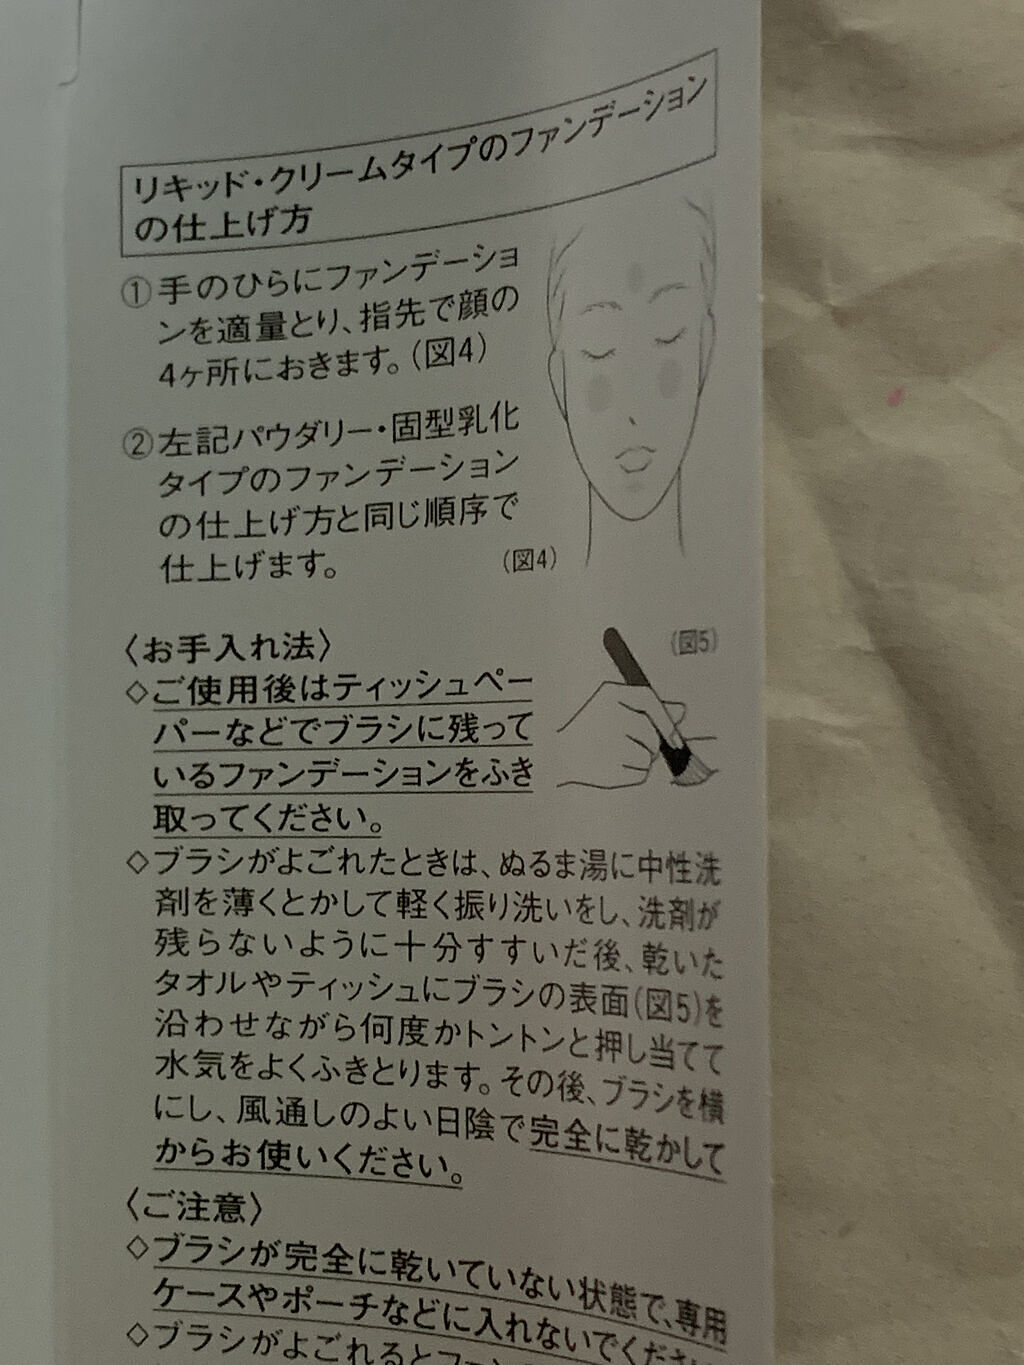 リキッド・クリームタイプのファンデーション
の仕上げ方
①手のひらにファンデーショ
ンを適量とり、指先で顔の
4ヶ所におきます。(図4)
②左記パウダリー・固型乳化
タイプのファンデーション
の仕上げ方と同じ順序で
仕上げます。
(図4)
〈お手入れ法〉
(図5)
◇ご使用後はティッシュペー
パーなどでブラシに残って
いるファンデーションをふき
取ってください。
◇ブラシがよごれたときは、ぬるま湯に中性洗
剤を薄くとかして軽く振り洗いをし、洗剤が
残らないように十分すすいだ後、乾いた
タオルやティッシュにブラシの表面(図5)を
沿わせながら何度かトントンと押し当てて
水気をよくふきとります。その後、ブラシを横
にし、風通しのよい日陰で完全に乾かして
からお使いください。
〈ご注意〉
◇ブラシが完全に乾いていない状態で、専用
ケースやポーチなどに入れないでくださ
◇ブラシがよごれるとファン